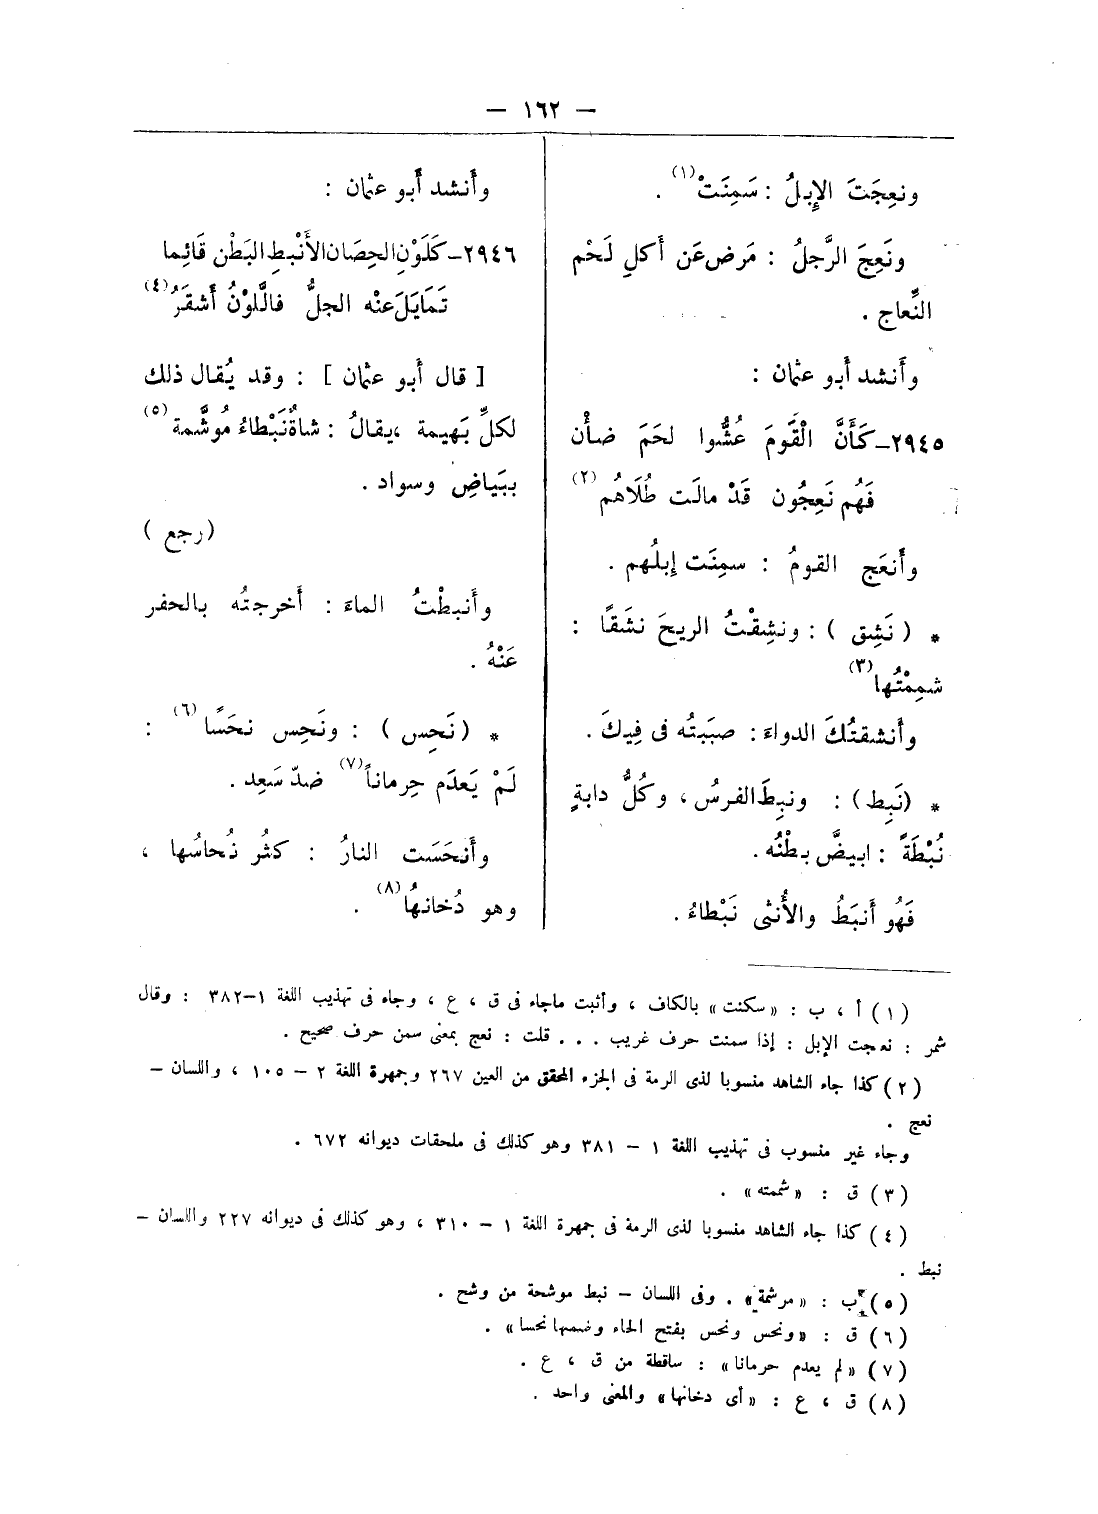 — ١٦٢ —
ونعِجَتَ الإِبلُ : سَمِنَتْ(١) .
ونَعِجَ الرَّجلُ : مَرض عَن أكلِ لَحْم
النِّعاج .
وأَنشد أَبو عثمان :
٢٩٤٥ــ كَأَنَّ الْقَومَ عُشُّوا لحَمَ ضأْن
فَهُم نَعِجُون قَدْ مالَت طُلَاهُم(٢)
وأَنعَج القومُ : سمِنَت إِبلُهم .
* ( نَشِق ) : ونشِقْتُ الريحَ نشَقًا :
شمِمْتُها(٣)
وأَنشقتُكَ الدواءَ : صبَبتُه فى فِيكَ .
* (نَبِط) : ونبِطَ الفرسُ ، وكُلُّ دابةٍ
نُبْطَةً : ابيضَّ بطْنُه .
فَهُو أَنبَطُ والأُنثى نَبْطاءُ .
وأَنشد أَبو عثمان :
٢٩٤٦ــ كَلَوْنِ الحِصَان الأَنْبطِ البَطْن قَائِما
تَمَايَلَ عنْه الجلُّ فالَّلوْنُ أَشقَرُ(٤)
[ قال أَبو عثمان ] : وقد يُقال ذلك
لكلِّ بَهيمة ، يقالُ : شاةٌ نَبْطاءُ مُوشَّمة(٥)
ببَياضِ وسواد .
(رجع )
وأَنبطْتُ الماءَ : أَخرجتُه بالحفر
عَنْهُ .
* (نَحِس ) : ونَحِس نحَسًا(٦) :
لَمْ يَعدَم حِرماناً(٧) ضدّ سَعِد .
وأَنحَسَت النارُ : كثُر نُحاسُها ،
وهو دُخانهُا(٨) .
(١) أ ، ب : «سكنت» بالكاف ، وأثبت ماجاء فى ق ، ع ، وجاء فى تهذيب اللغة ١–٣٨٢ : وقال
شمر : نعجت الإبل : إذا سمنت حرف غريب . . . قلت : نعج بمعنى سمن حرف صحيح .
(٢) كذا جاء الشاهد منسوبا لذى الرمة فى الجزء المحقق من العين ٢٦٧ وجمهرة اللغة ٢ – ١٠٥ ، واللسان –
نعج .
وجاء غير منسوب فى تهذيب اللغة ١ – ٣٨١ وهو كذلك فى ملحقات ديوانه ٦٧٢ .
(٣) ق : «شمته» .
(٤) كذا جاء الشاهد منسوبا لذى الرمة فى جمهرة اللغة ١ – ٣١٠ ، وهو كذلك فى ديوانه ٢٢٧ واللسان –
نبط .
(٥) ب : «مرشمة» . وفى اللسان – نبط موشحة من وشح .
(٦) ق : «ونحس ونحس بفتح الحاء وضمها نحسا» .
(٧) «لم يعدم حرمانا» : ساقطة من ق ، ع .
(٨) ق ، ع : «أى دخانها» والمعنى واحد .